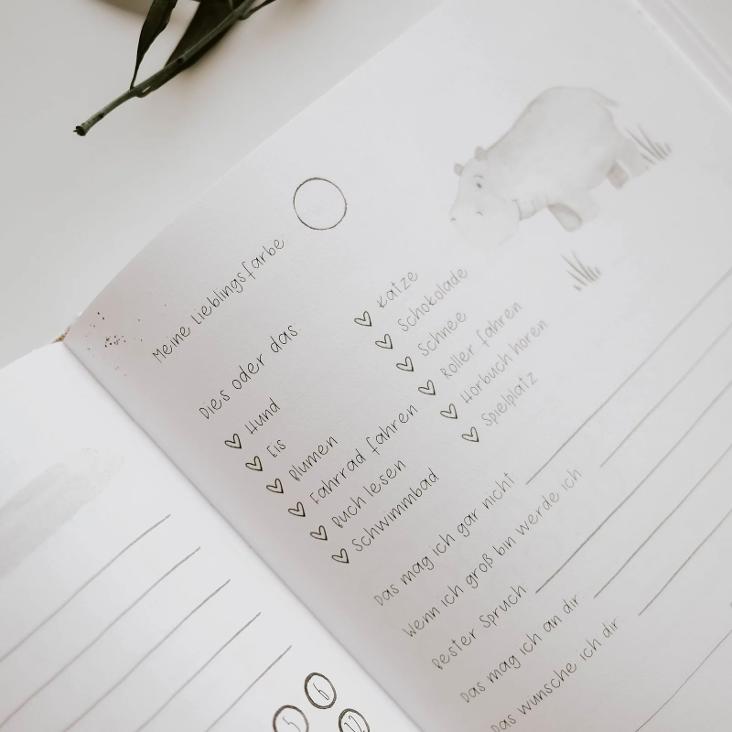 Meine Lieblingsfarbe
Dies oder das
Hund
Katze
Eis
Schokolade
Blumen
Schnee
Fahrrad fahren
Roller fahren
Buch lesen
Hörbuch hören
Schwimmbad
Spielplatz
Das mag ich gar nicht
Wenn ich groß bin werde ich
Bester Spruch
Das mag ich an dir
Das wünsche ich dir
5
6